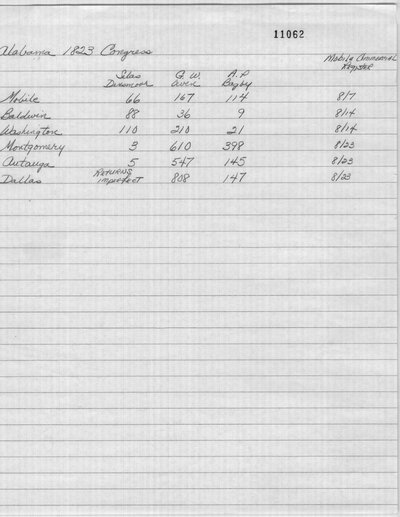 11062
Alabama 1823 Congress
Mobile Commercial Register
Silas Dinsmoor G. W. Owen A. P. Bagby
Mobile 66 167 114 8/7
Baldwin 88 36 9 8/14
Washington 110 210 21 8/14
Montgomery 3 610 398 8/23
Autauga 5 547 145 8/23
Dallas Returns imperfect 808 147 8/23